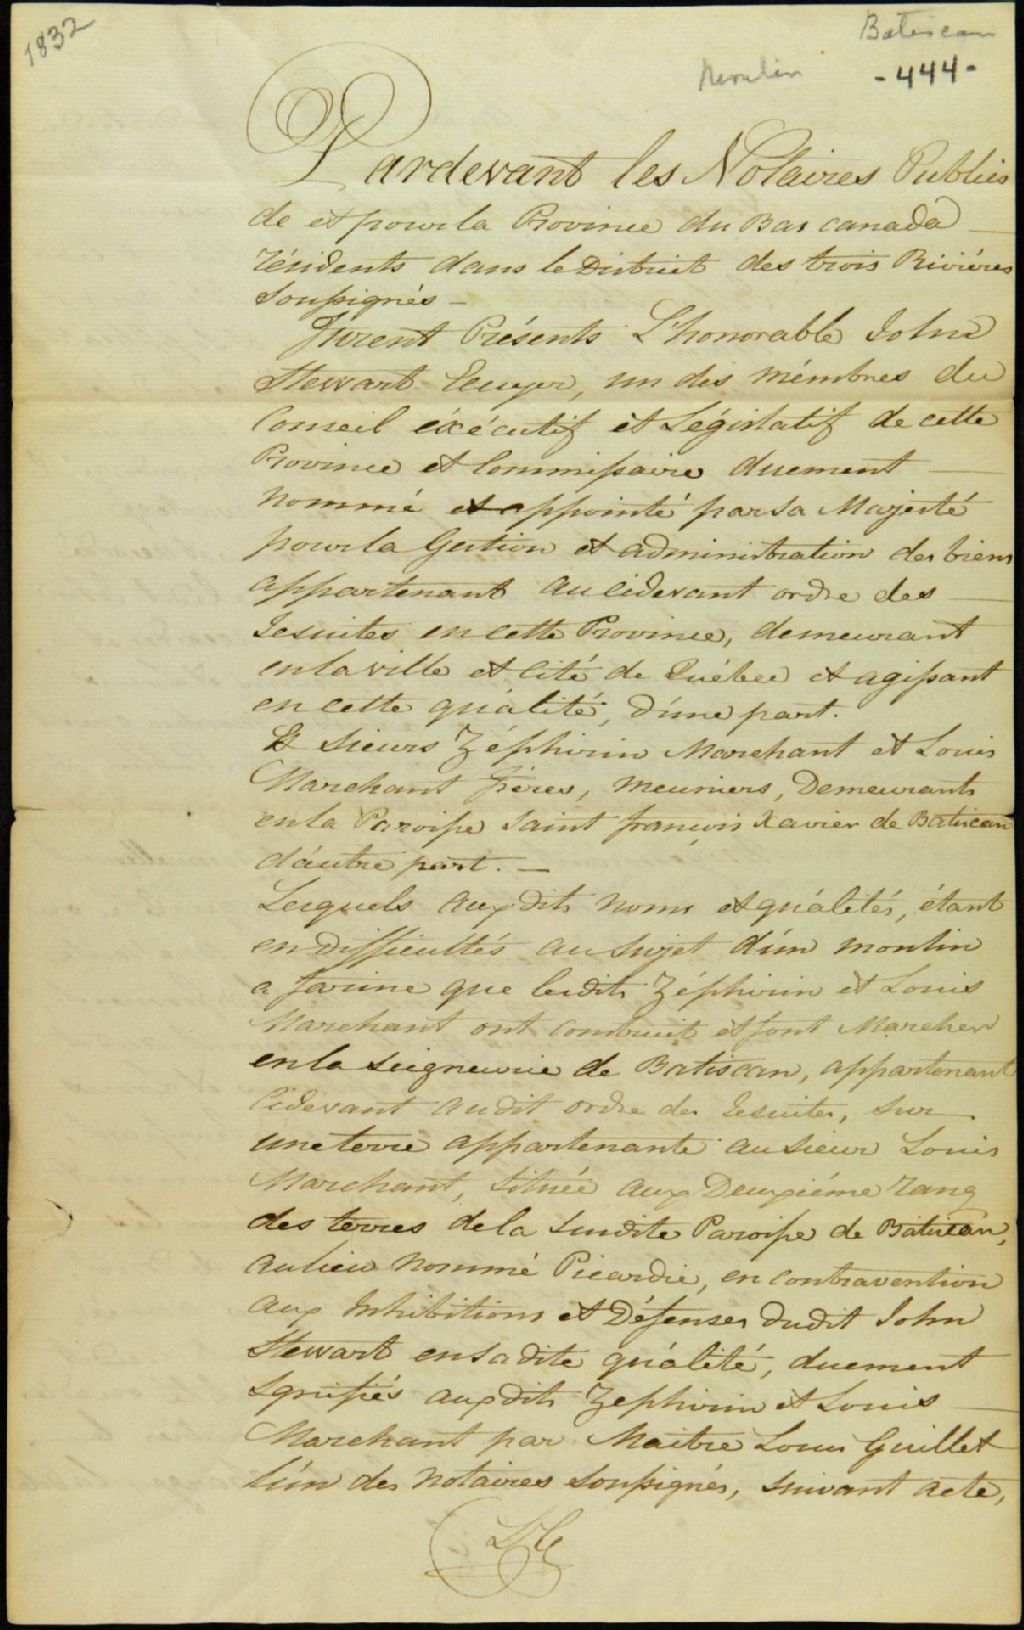 1832
Batiscan
Moulin
-444-
Pardevant les Notaires Publics
de et pour la Province du Bas canada
résidents dans le District des trois Riviéres
Soussignés —
Furent Présents L'honorable John
Stewart Ecuyer, un des mémbres du
Conseil éxécutif et Législatif de cette
Province et Commissaire duement
nommé et appointé par Sa Majesté
pour la Gestion et administration des biens
appartenant au cidevant ordre des
Jesuites en cette Province, demeurant
en la ville et Cité de Québec et agissant
en cette quálité, d'úne part.
Et Sieurs Zéphirin Marchant et Louis
Marchant fréres, meuniers, Demeurants
en la Paroisse Saint françois Xavier de Batiscan
d'áutre part. —
Lesquels aux dits noms et quálités, étant
en difficultés au Sujet d'ún moulin
a farine que lesdits Zéphirin et Louis
Marchant ont construit et font Marcher
en la Seigneurie de Batiscan, appartenant
Cidevant audit ordre des Jesuites, sur
une terre appartenante au Sieur Louis
Marchant, Située aux Deuxiéme rang
des terres de la Susdite Paroisse de Batiscan,
au lieu nommé Picardie, en contravention
aux Inhibitions et Défenses dudit John
Stewart en sa dite quálité, duement
Signifiés auxdits Zephirin et Louis
Marchant par Maitre Louis Guillet
l'ún des Notaires Soussignés, suivant acte,
LG